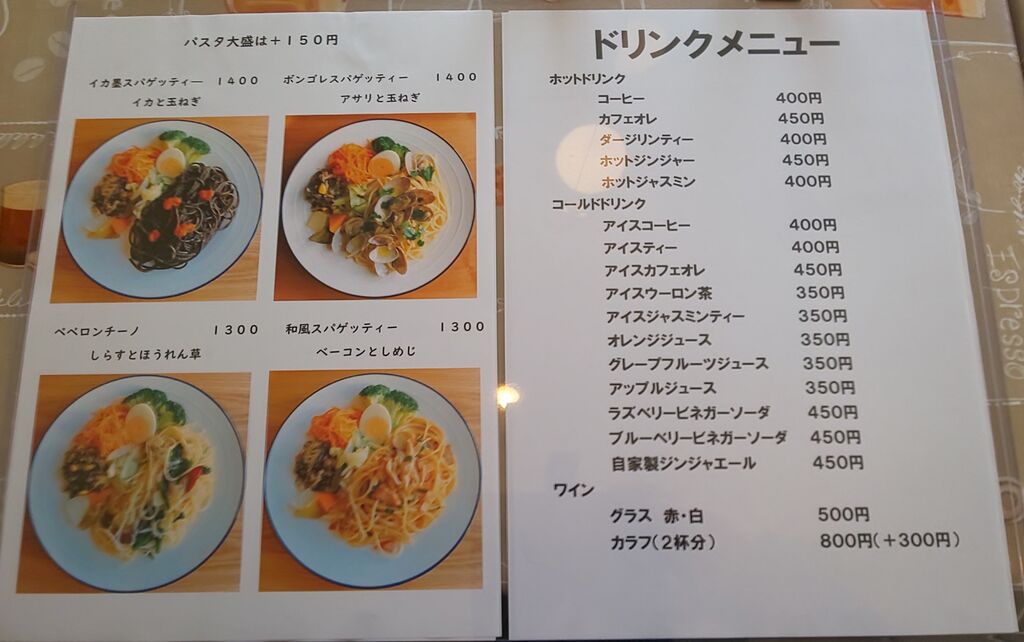 パスタ大盛は＋１５０円
イカ墨スパゲッティー　１４００
イカと玉ねぎ
ボンゴレスパゲッティー　１４００
アサリと玉ねぎ
ペペロンチーノ　１３００
しらすとほうれん草
和風スパゲッティー　１３００
ベーコンとしめじ
ドリンクメニュー
ホットドリンク
コーヒー　400円
カフェオレ　450円
ダージリンティー　400円
ホットジンジャー　450円
ホットジャスミン　400円
コールドドリンク
アイスコーヒー　400円
アイスティー　400円
アイスカフェオレ　450円
アイスウーロン茶　350円
アイスジャスミンティー　350円
オレンジジュース　350円
グレープフルーツジュース　350円
アップルジュース　350円
ラズベリービネガーソーダ　450円
ブルーベリービネガーソーダ　450円
自家製ジンジャエール　450円
ワイン
グラス　赤・白　500円
カラフ（２杯分）　800円（＋300円）
ESPRESSO